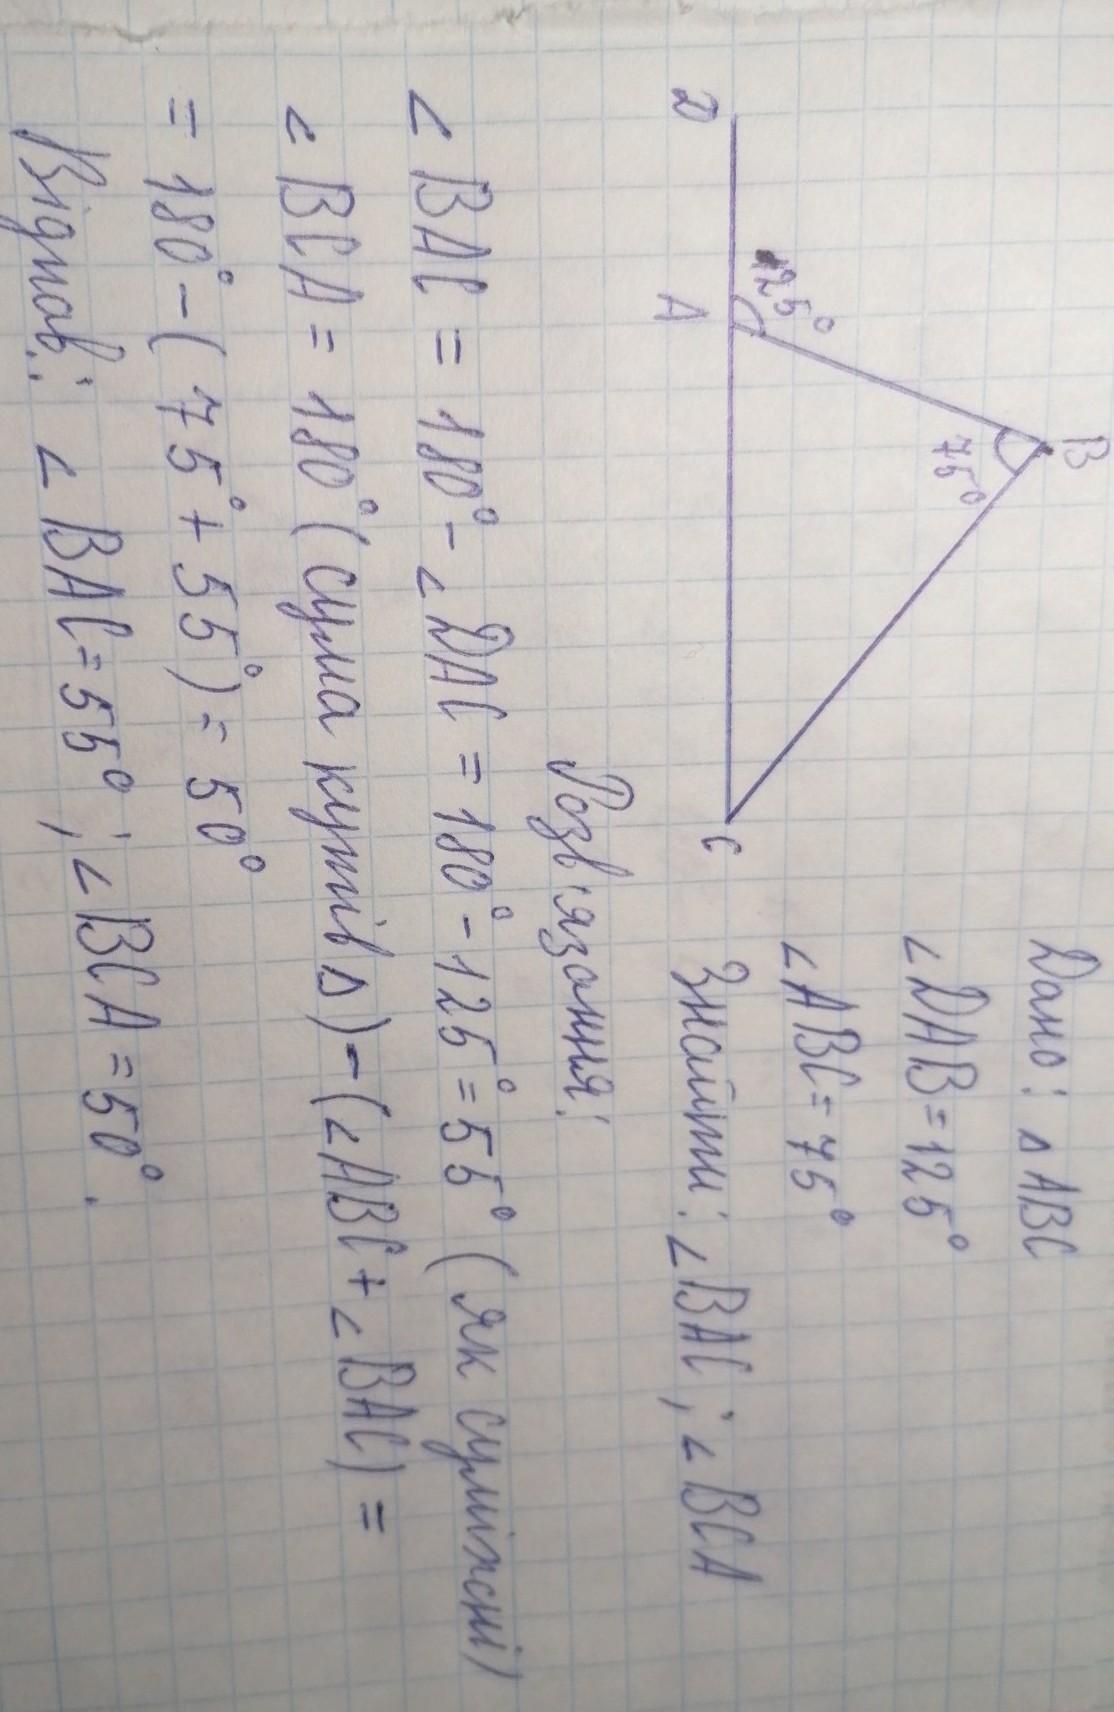 B
125°
75°
D
A
C
Дано: △ABC
∠DAB=125°
∠ABC=75°
Знайти: ∠BAC; ∠BCA
Розв'язання:
∠BAC = 180° - ∠DAC = 180° - 125° = 55° (як суміжні)
∠BCA = 180° (сума кутів △) - (∠ABC + ∠BAC) =
= 180° - (75° + 55°) = 50°
Відпов.: ∠BAC = 55°; ∠BCA = 50°.